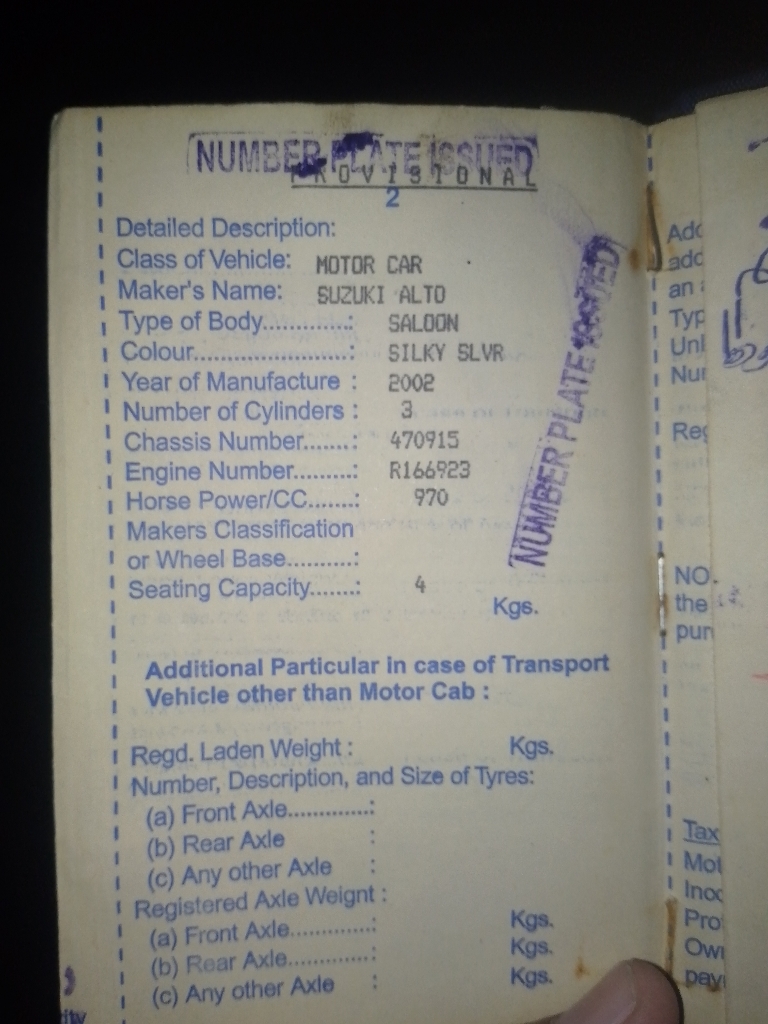 NUMBER PLATE ISSUED
PROVISIONAL
2
Detailed Description:
Class of Vehicle: MOTOR CAR
Maker's Name: SUZUKI ALTO
Type of Body..............: SALOON
Colour.........................: SILKY SLVR
Year of Manufacture : 2002
Number of Cylinders : 3
Chassis Number........: 470915
Engine Number..........: R166923
Horse Power/CC.......: 970
Makers Classification
or Wheel Base...........:
Seating Capacity.......: 4
Kgs.
NUMBER PLATE ISSUED
Additional Particular in case of Transport
Vehicle other than Motor Cab :
Regd. Laden Weight : Kgs.
Number, Description, and Size of Tyres:
(a) Front Axle..............:
(b) Rear Axle :
(c) Any other Axle :
Registered Axle Weignt :
(a) Front Axle..............: Kgs.
(b) Rear Axle..............: Kgs.
(c) Any other Axle : Kgs.
Add
add
an
Typ
Unl
Nur
Reg
NO.
the
pur
Tax
Mot
Inco
Pro
Own
pay